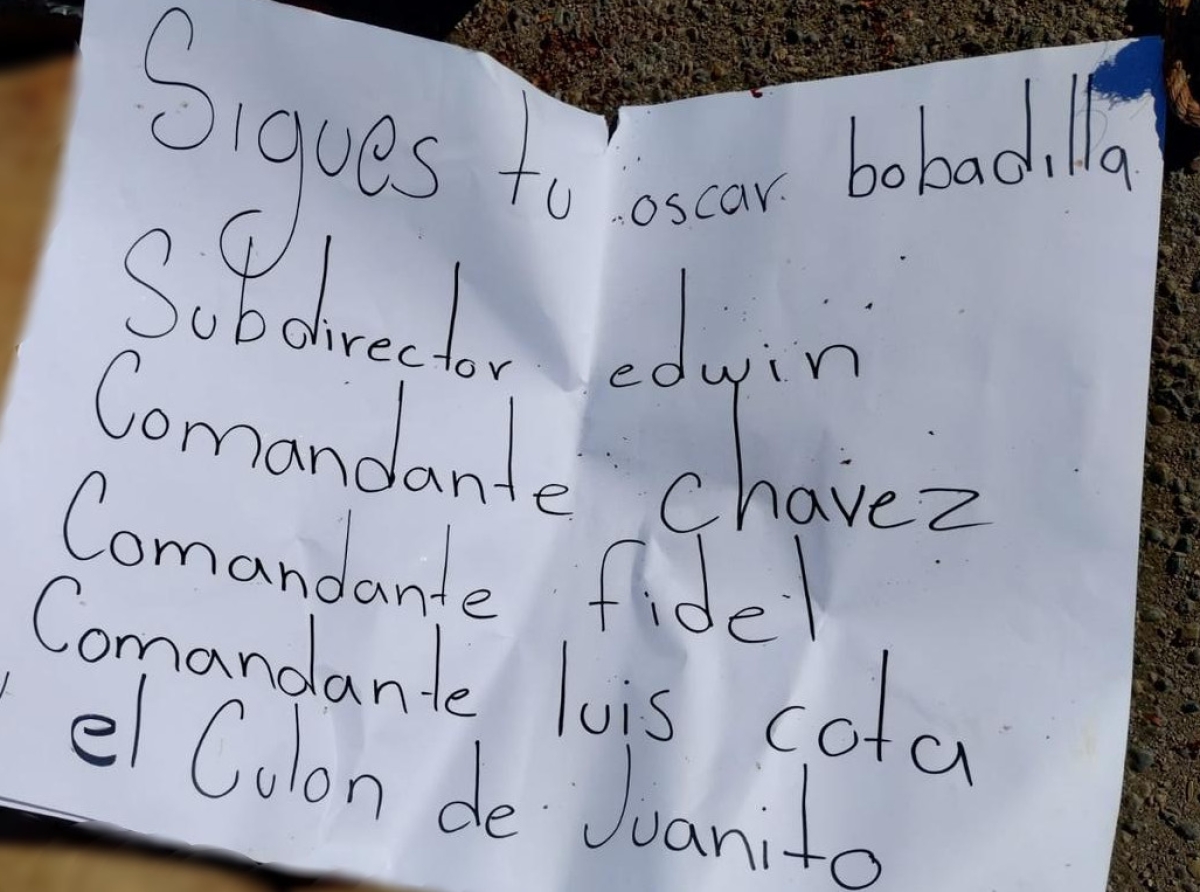 Sigues tu oscar bobadilla
Subdirector edwin
Comandante chavez
Comandante fidel
Comandante luis cota
y el Culon de Juanito